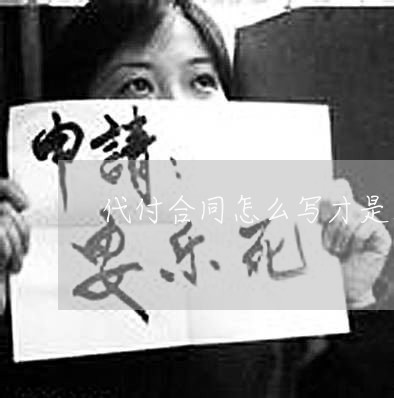 申請:
代付合同怎么写才是
安乐死